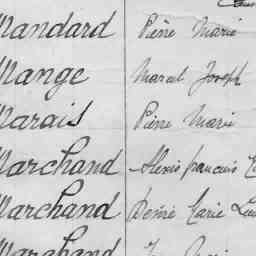 Mandard Pierre Marie
Mange Marcel Joseph
Marais Pierre Marie
Marchand Alexis francois
Marchand Désiré Marie
Marchand